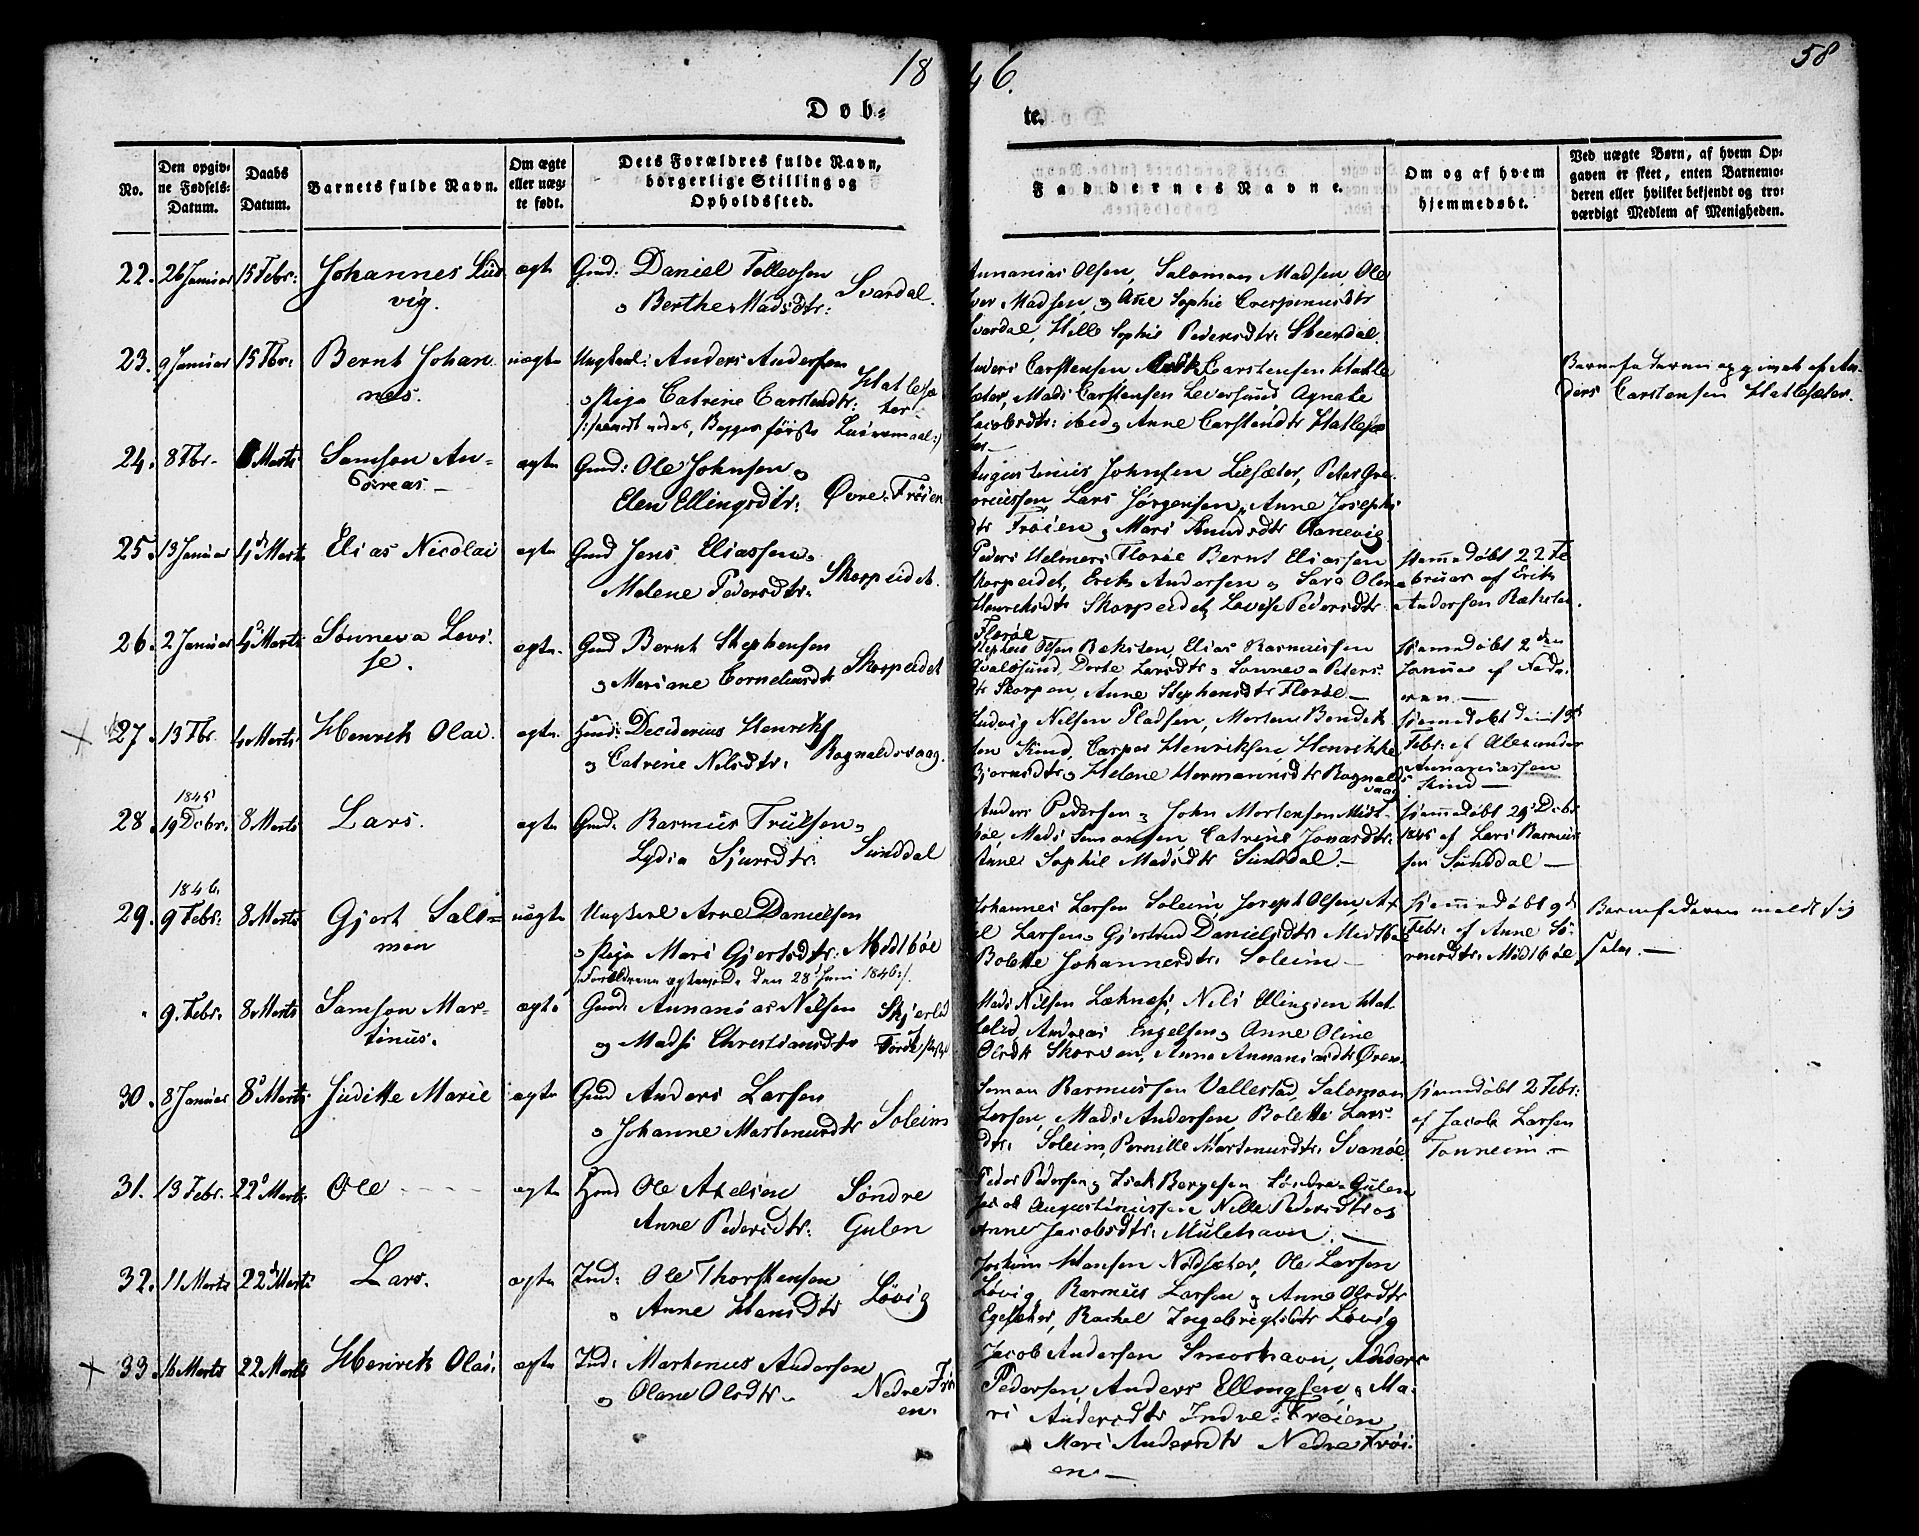 18 46.
58
Døb- te.
No.
Den opgiv-
ne Fødsels-
Datum.
Daabs
Datum.
Barnets fulde Navn.
Om ægte
eller uæg-
te født.
Dets Forældres fulde Navn,
borgerlige Stilling og
Opholdssted.
Faddernes Navne.
Om og af hvem
hjemmedøbt.
Ved uægte Børn, af hvem Op-
gaven er skeet, enten Barnemo-
deren eller hvilket bekjendt og tro-
værdigt Medlem af Menigheden.
22. 26 Januar 15 Febr: Johannes Lud-
vig.
ægte
Gmd: Daniel Tollevsen
o Berthe Madsdtr: Svardal.
Annanias Olsen, Salomon Madsen, Ole
Madsen, og Ane Sophie Crespinusdtr
Svardal, Helle Sophie Pedersdtr: Steendal.
23. 9 Januar 15 Fbr: Bernt Johan-
nes.
uægte
Ungkarl: Anders Andersen
o Pige Catrine Carstendtr: Hatlesæ-
ter.
Anders Carstensen Carstensen Hatle-
sæter, Mads Carstensen Leversund, Agnete
Jacobsdtr: ibid og Anne Carstendtr Hatlesæ-
ter
Barnefaderen opgivet af An-
ders Carstensen Hatlesæter.
24. 8 Fbr. Marts Samson An-
dreas
ægte
Gmd: Ole Johnsen o
Elen Ellingsdtr: Øvre Frøien
Augustinus Johnsen Liesæter, Peter Gre-
goriussen, Lars Jørgensen, Anne Josephs-
dtr Frøien og Mari Knudsdtr
25. 13 Januar 4de Marts Elias Nicolai
ægte
Gmd Jens Eliassen o
Malene Pedersdtr: Skorpeidet.
Peder Helmers Florøe Bernt Eliassen
Skorpeidet, Erik Andersen og Sara Olena
Henriksdtr Skorpeidet, Lovise Pedersdtr
Florøe
Hjemmedøbt 22 Fe-
bruar af Erik
AndersenRæksten.
26. 2 Januar 4 Marts Sønneva Lovi-
se.
ægte.
Gmd Bernt Stephensen
o Mariane Corneliusdtr Skorpeidet
Stephen Olsen Ræksten, Elias Rasmussen
Qvalosund, Dorte Larsdtr o Sønneva Peters-
dtr Skorpen, Anne Stephensdtr Florøe
Hjemmedøbt 2den
Januar af Fade-
ren.
27. 13 Fbr. 4 Marts: Henrik Olai.
ægte.
Huusmd: Deciderius Henriks
o Catrine Nilsdtr: Ragnaldsvaag.
Ludvig Nilsen Pladsen, Morten Bendik-
sen Kind, Casper Henriksen, Henrikke
Bjørnsdtr o Helene Hermannsdtr Ragnalds-
vaag
Hjemmedøbt den 13de
Febr: af Alexander
Annaniassen
Kind
28. 1845 19 Dcbr. 8 Marts Lars.
ægte
Gmd: Rasmus Trulsen o
Lydia Sjursdtr: Sunddal
Anders Pedersen og John Mortensen Midt-
bøe, Mads Simonsen, Catrine Jonasdtr:
Anne Sophie Madsdtr Sunddal.
Hjemmedøbt 29 Dcbr
1845 af Lars Rasmus-
sen Sunddal
29. 1846. 9 Febr: 8 Marts Gjert Salo-
mon
uægte
Ungkarl Arne Danielsen
o Pige Mari Gjertsdtr: Midtbøe
/:Forældrene ægteviede den 28 Juni 1846:/
Johannes Larsen Soleim, Joseph Olsen, Ax-
el Larsen o Gjertrud Danielsdtr Midtbøe
Bolette Johannesdtr: Soleim
Hjemmedøbt 9de
Febr: af Anne Sø-
rensdtr: Midtbøe
Barnefaderen meldt sig
selv.
" 9. Febr: 8 Marts Samson Mar-
tinus.
ægte
Gmd: Annanias Nilsen
o Madsi Christiansdtr
Mads Nilsen Løknæs, Nils Ellingsen Hat-
lelid, Andreas Engelsen o Anne Oline
Olsdtr Skorven, Anna Annaniasdtr Øren
30. 8 Januar 8 Marts Juditte Marie
ægte
Gmd Anders Larsen
o Johanne Martinusdtr Soleim
Simon Rasmussen Vallestad, Salomon
Larsen, Mads Andersen, Bolette Lars-
dtr: Soleim, Pernille Martinusdtr: Svanøe.
Hjemmdøbt 2 Febr:
af Jacob Larsen
Tonheim
31. 13 Febr. 22 Marts. Ole
ægte
Hmd Ole Axelsen Søndre
Anne Pedersdtr: Gulen
Peder Pedersen o Isak Børgesen Søndre Gulen
Jacob Augustinussen, Nille Pedersdtr og
Anne Jacobsdtr: Mulehavn.
32. 11 Marts 22de Marts Lars.
ægte
Ind: Ole Thorstensen
o Anne Hansdtr Løvig
Joakim Hansen Nedsæter, Ole Larsen
Løvig, Rasmus Larsen o Anne Olsdtr
Egesæter, Rachel Ingebrigtsdtr Løvig
33. 16 Marts 22 Marts Henrik Olai.
ægte
Ind: Martinus Andersen
o Olane Olsdtr Nedre Frøi-
en.
Jacob Andersen Smørhavn, Anders
Pedersen, Anders Ellingsen, o Ma-
ri Andersdtr Indre Frøien
Mari Andersdtr Nedre Frøi-
en